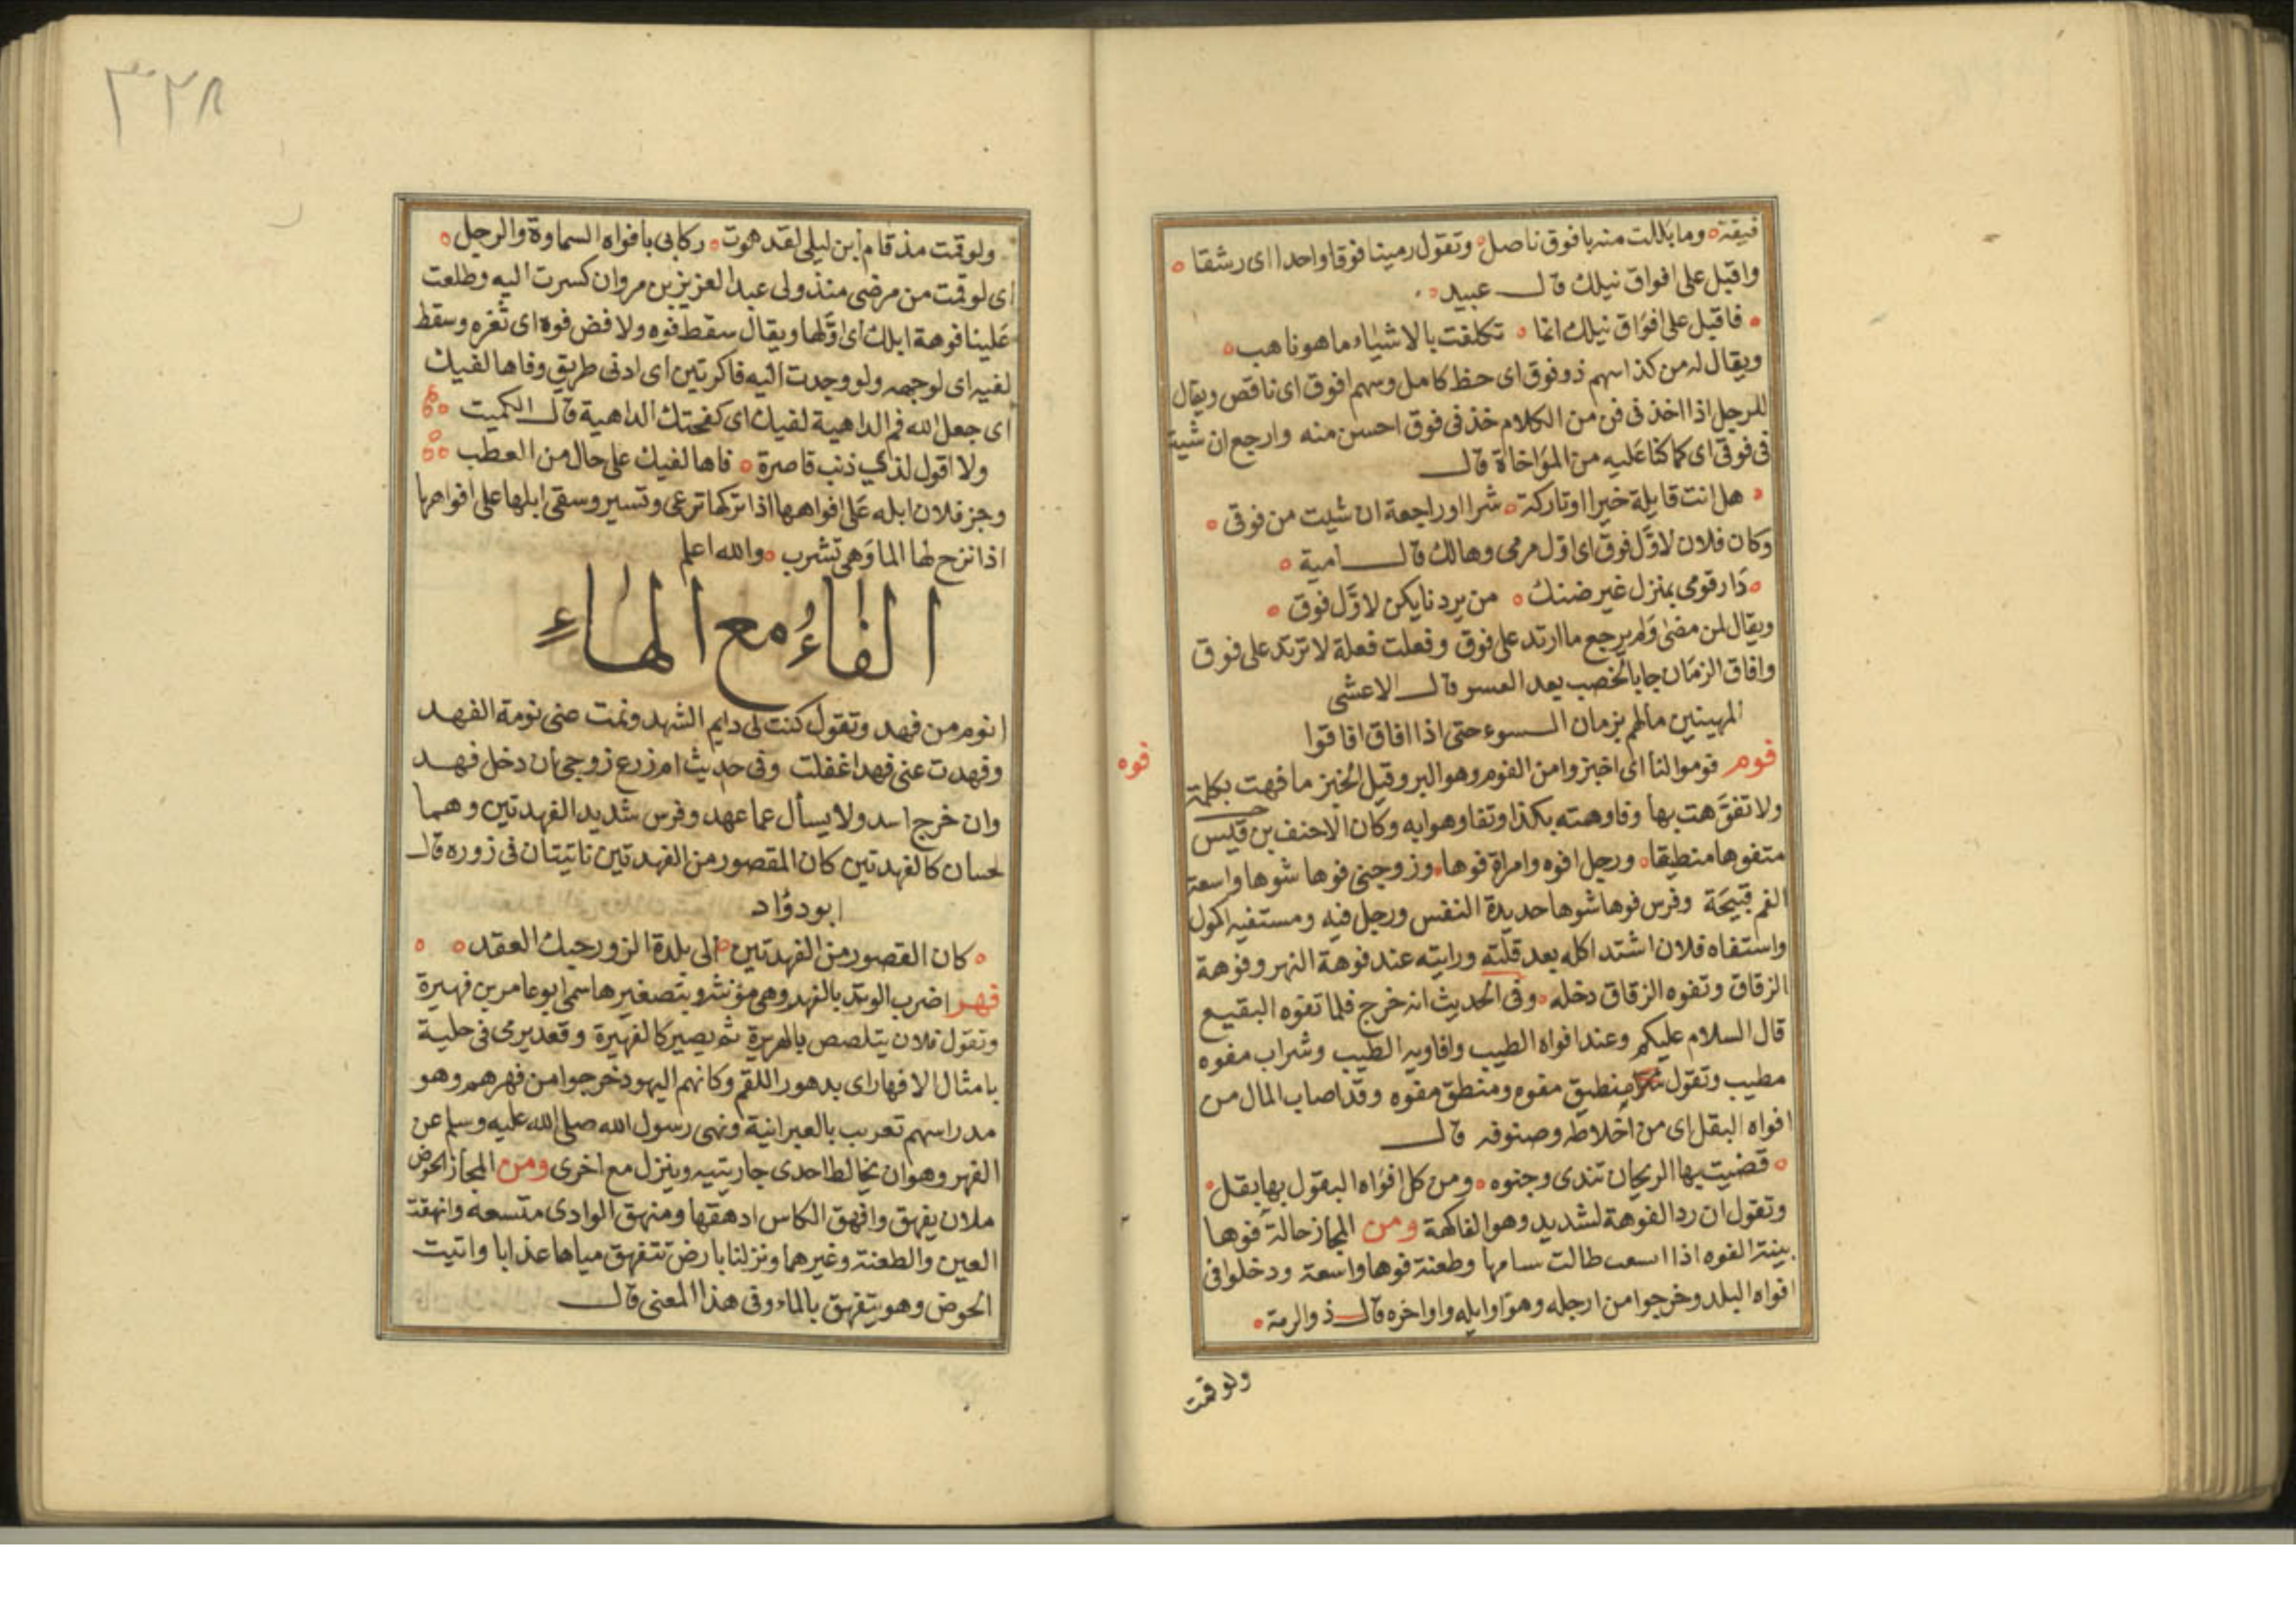 فيقة وما بللت منه بافوق ناصل وتقول رمينا فوقا واحدا اى رشقا
واقبل على افواق نيلك قال عبيد
فاقبل على افواق نيلك انما تكلفت بالاشياء ما هو ناهب
ويقال له من كذا سهم ذو فوق اى حظ كامل وسهم افوق اى ناقص ويقال
للرجل اذا اخذ فى فن من الكلام خذ فى فوق احسن منه وارجع ان شيت
فى فوقى اى كما كنا عليه من المؤاخاة قال
هل انت قايلة خيرا او تاركة شرا او راجعة ان شيت من فوقى
وكان فلان لاوّل فوق اى اول مرمى وهالك قال امية
دار قومى بمنزل غير ضنك من يردنا يكن لاوّل فوق
ويقال لمن مضى ولم يرجع ما ارتد على فوق وفعلت فعلة لا ترتد على فوق
وافاق الزمان جا بالخصب بعد العسر قال الاعشى
المهينين مالهم بزمان السوء حتى اذا افاق افاقوا
فوم فوموا لنا اى اخبزوا من الفوم وهو البر وقيل الخبز ما فهت بكلمة
فوه
ولا تفوّهت بها وفاوهته بكذا وتفاوهوا به وكان الاحنف بن قيس
متفوها منطيقا ورجل افوه وامراة فوها وزوجنى فوها شوها واسعة
الفم قبيحة وفرس فوها شوها حديدة النفس ورجل فيه ومستفيه اكول
واستفاه فلان اشتد اكله بعد قلته ورايته عند فوهة النهر وفوهة
الزقاق وتفوه الزقاق دخله وفى الحديث انه خرج فلما تفوه البقيع
قال السلام عليكم وعند افواه الطيب وافاويه الطيب وشراب مفوه
مطيب وتقول منطيق مفوه ومنطق مفوه وقد اصاب المال من
افواه البقل اى من اخلاطه وصنوفه قال
قضيت بها الريحان تندى وجنوه ومن كل افواه البقول بها بقل
وتقول ان رد الفوهة لشديد وهو الفاكهة ومن المجاز حالة فوها
بينة الفوه اذا اسعت طالت سامها وطعنة فوها واسعة ودخلوا فى
افواه البلد وخرجوا من ارجله وهو اوايله واواخره قال ذو الرمة
ولو قمت
٣٢٨
ولو قمت مذ قام ابن ليلى لقد هوت ركابى بافواه السماوة والرجل
اى لو قمت من مرضى منذ ولى عبد العزيز بن مروان كسرت اليه وطلعت
علينا فوهة ابلك اى اوّلها ويقال سقط فوه ولا فض فوه اى ثغره وسقط
لفيه اى لوجهه ولو وجدت اليه فاكرتين اى ادنى طريق وفاها لفيك
اى جعل الله فم الداهية لفيك اى كفحتك الداهية قال الكميت
ولا اقول لذى ذنب قاصرة فاها لفيك على حال من العطب
وجز فلان ابله على افواهها اذا تركها ترعى وتسير وسقى ابلها على افواهها
اذا نزح لها الما وهى تشرب والله اعلم
الفاء مع الهاء
انوم من فهد وتقول كنت لى دايم الشهد ونمت عنى نومة الفهد
وفهدت عنى فهدا غفلت وفى حديث ام زرع زوجى ان دخل فهد
وان خرج اسد ولا يسأل عما عهد وفرس شديد الفهدتين وهما
لحسان كالفهدتين كان المقصور من الفهدتين ناتيتان فى زوره قال
ابو دؤاد
كان القصور من الفهدتين الى بلدة الزور حبك العقد
فهر اضرب الوتد بالفهر وهى مؤنثة وبتصغيرها سمى ابو عامر بن فهيرة
وتقول فلان يتلصص بالهريرة ثم يصير كالفهيرة وقعد يرمى فى حلية
بامثال الافهار اى بدهور اللقم وكانهم اليهود خرجوا من فهرهم وهو
مدراسهم تعريب بالعبرانية ونهى رسول الله صلى الله عليه وسلم عن
الفهر وهو ان يخالط احدى جاريتيه وينزل مع اخرى ومن المجاز الحوض
ملان يفهق وافهق الكاس ادهقها ومنهق الوادى متسعه وانهقت
العين والطعنة وغيرهما ونزلنا بارض تتفهق مياها عذابا واتيت
الحوض وهو يتفهق بالماء وفى هذا المعنى قال